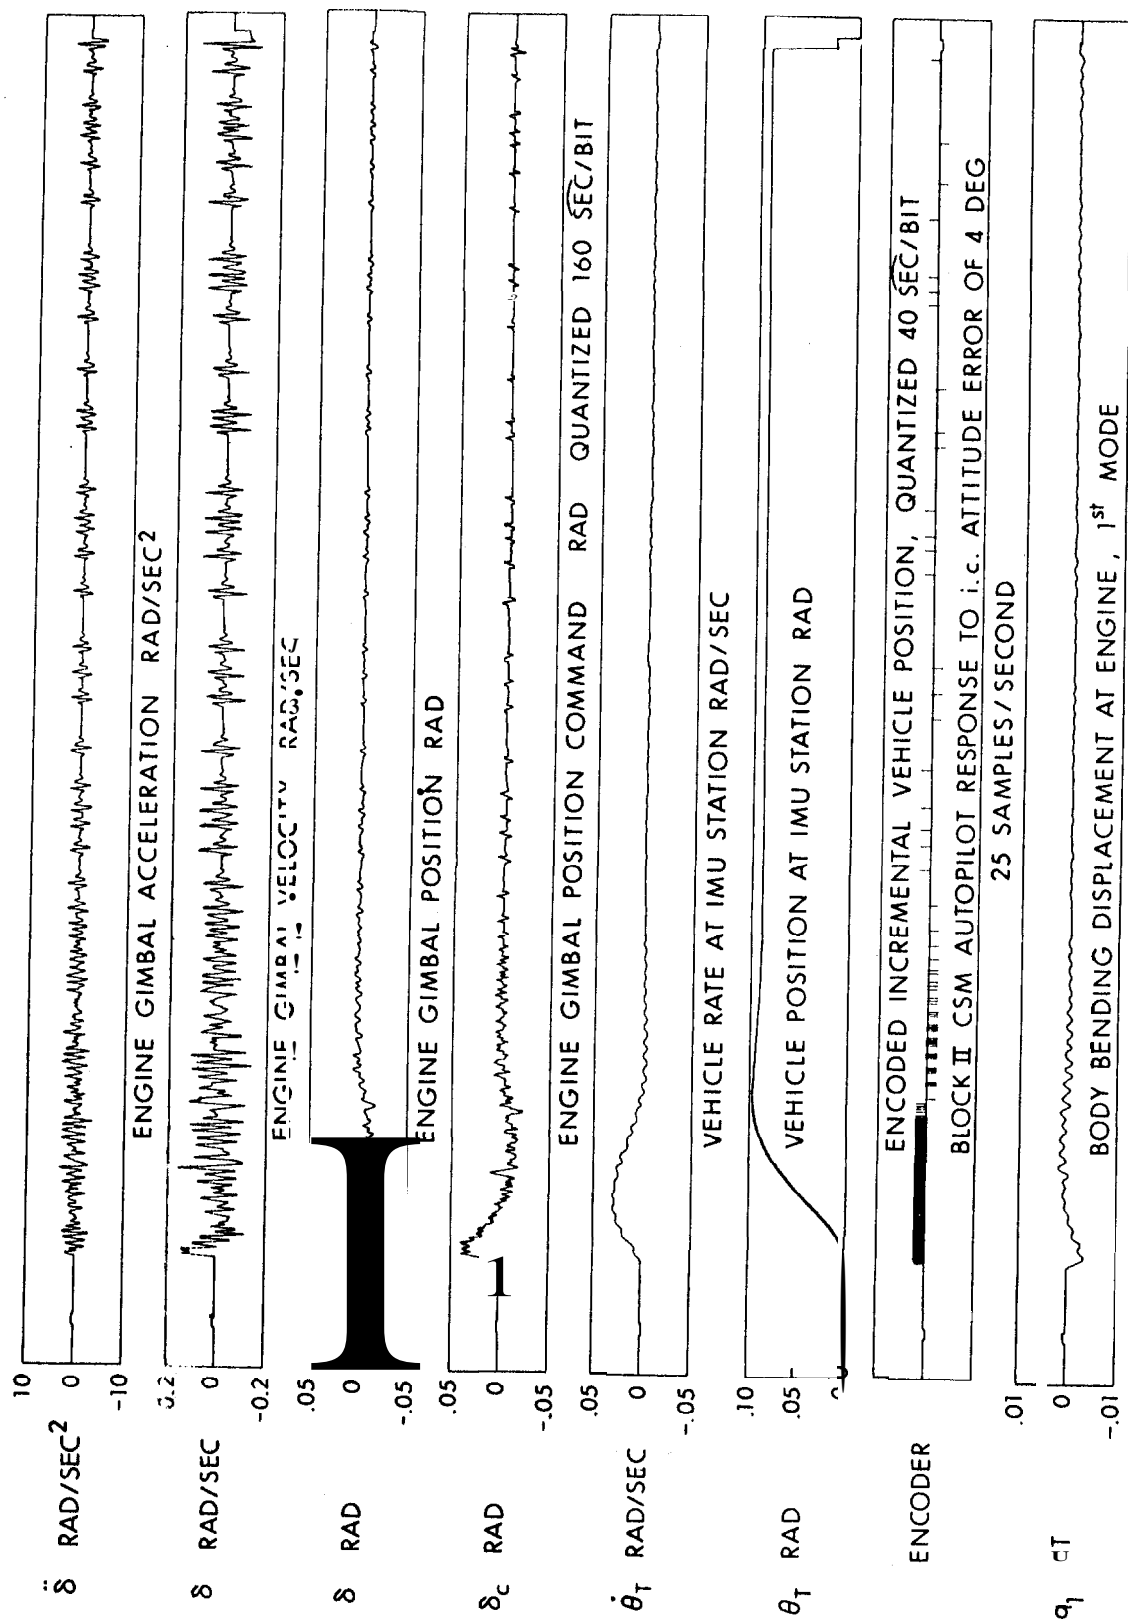 δ̈ RAD/SEC²
10
0
-10
ENGINE GIMBAL ACCELERATION RAD/SEC²
δ RAD/SEC
0.2
0
-0.2
ENGINE GIMBAL VELOCITY RAD/SEC
δ RAD
.05
0
-.05
ENGINE GIMBAL POSITION RAD
δc RAD
.05
0
-.05
ENGINE GIMBAL POSITION COMMAND RAD QUANTIZED 160 SEC/BIT
θ̇T RAD/SEC
.05
0
-.05
VEHICLE RATE AT IMU STATION RAD/SEC
θT RAD
.10
.05
0
VEHICLE POSITION AT IMU STATION RAD
ENCODER
ENCODED INCREMENTAL VEHICLE POSITION, QUANTIZED 40 SEC/BIT
BLOCK II CSM AUTOPILOT RESPONSE TO i.c. ATTITUDE ERROR OF 4 DEG
25 SAMPLES/SECOND
q1
.01
0
-.01
BODY BENDING DISPLACEMENT AT ENGINE, 1st MODE